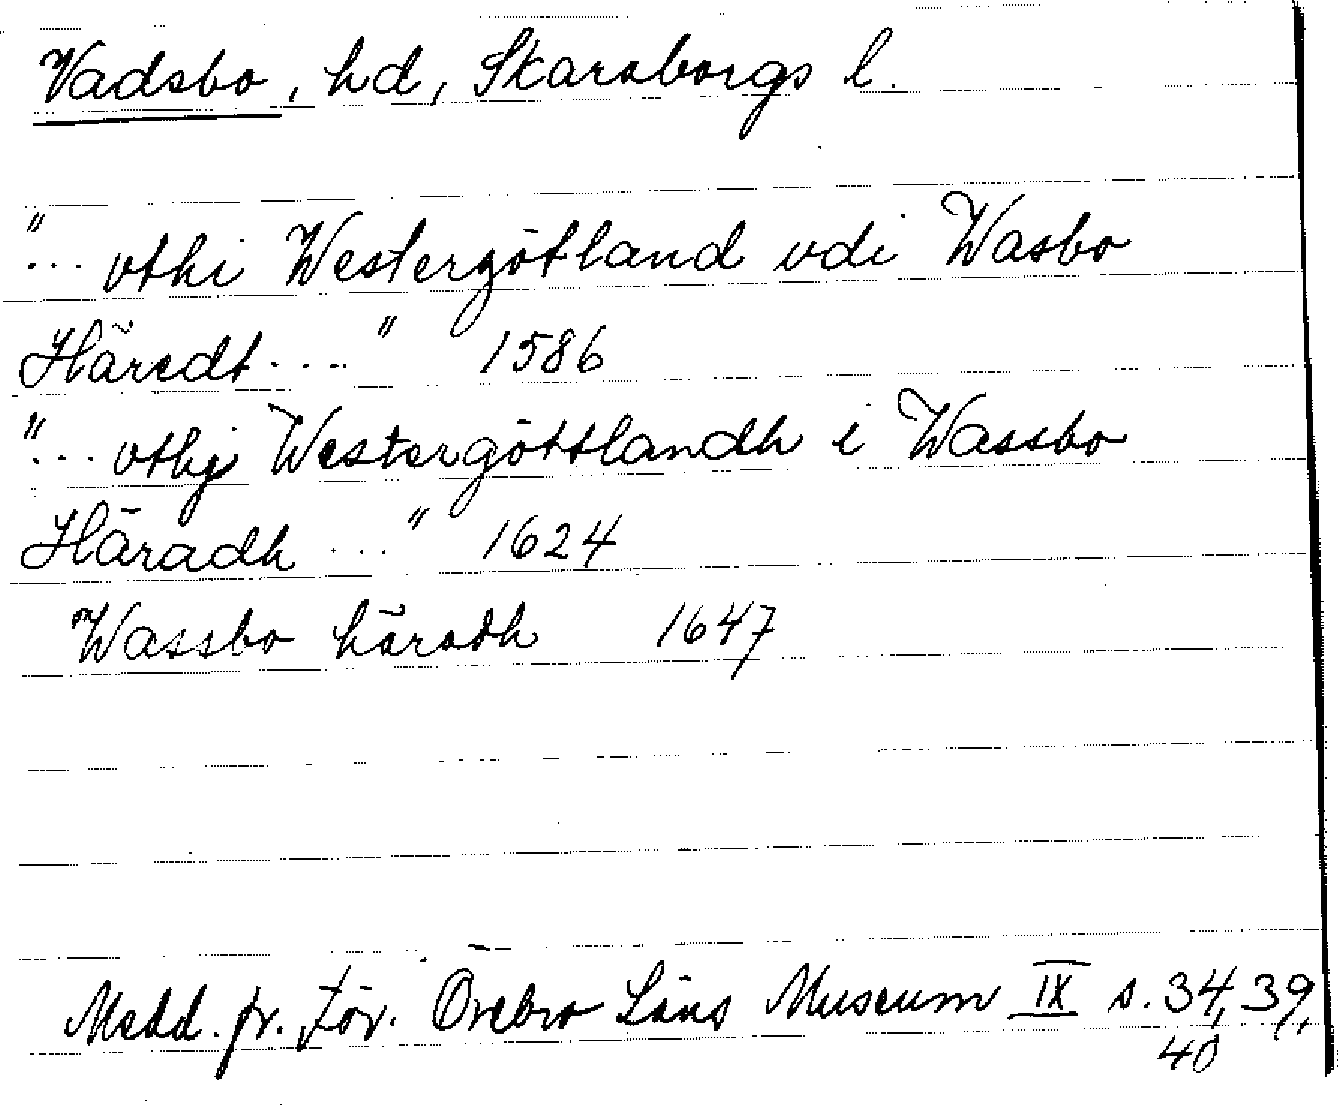 Vadsbo, hd, Skaraborgs l.
"... vthi Westergötland vdi Wasbo
Häredt...." 1586
"... vthj Westergöttlandh i Wassbo
Häradh ..." 1624
Wassbo häradh 1647
Medd. fr. För. Örebro Läns Museum IX s. 34, 39,
40